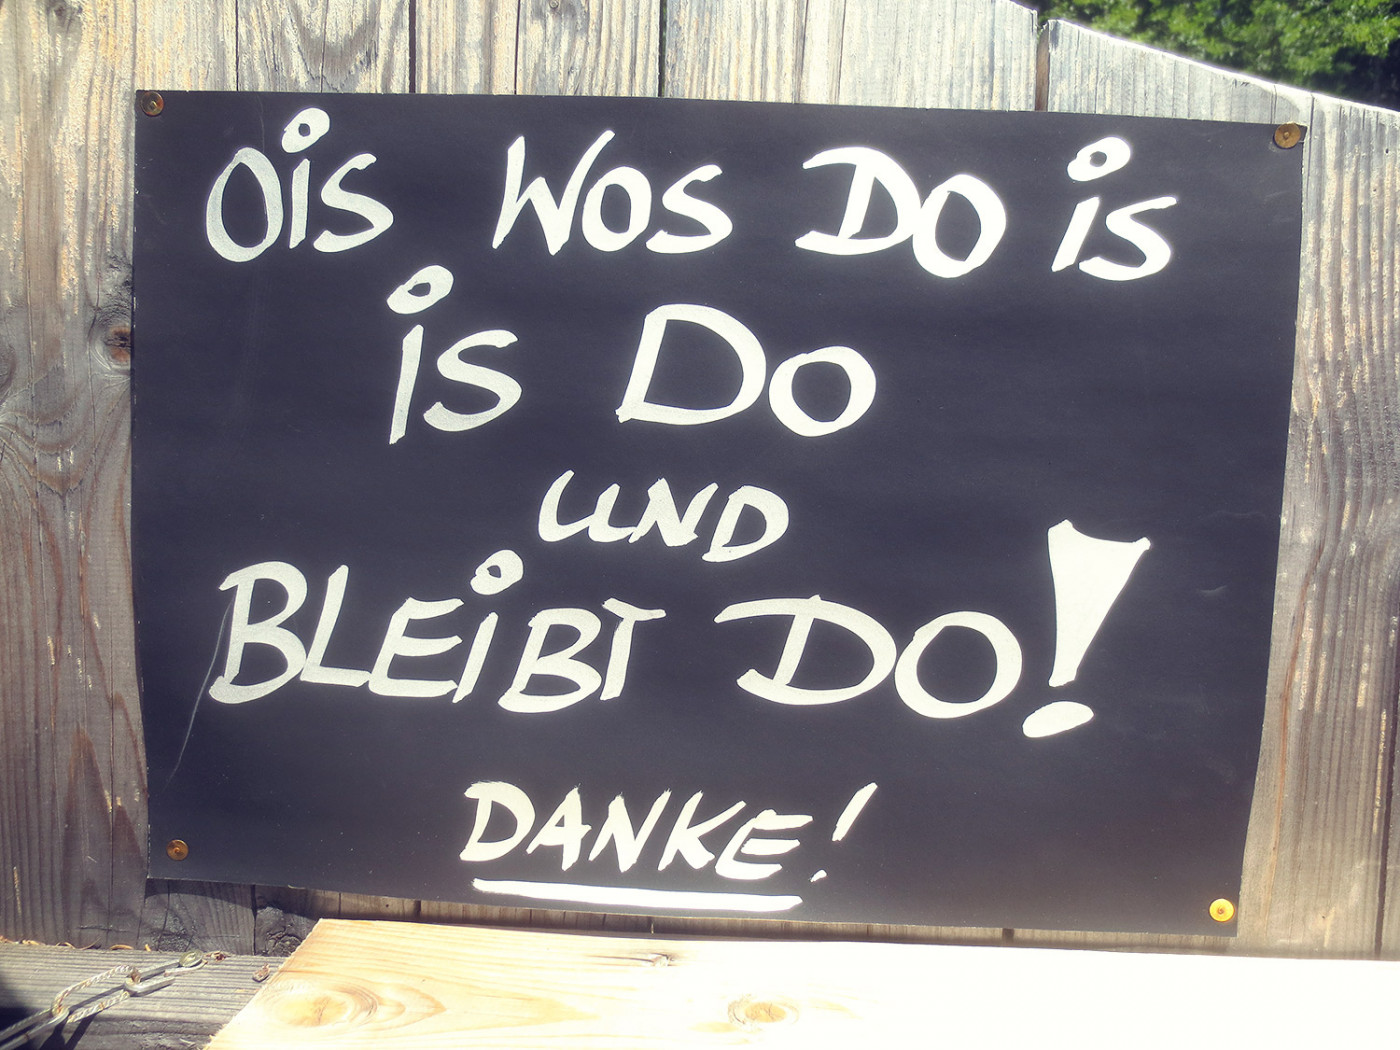 OiS WOS DO iS
iS DO
UND
BLEiBT DO!
DANKE!